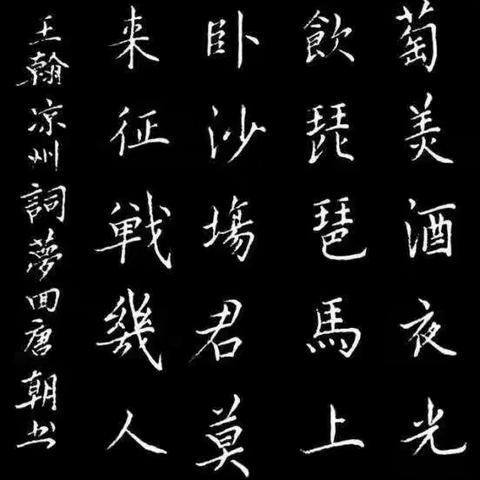 萄美酒夜光
飲琵琶馬上
卧沙場君莫
来征戦幾人
王翰凉州詞夢回唐朝书